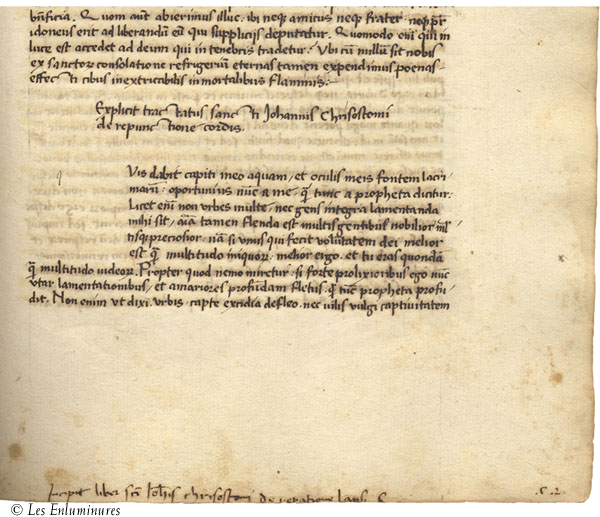 bn̄ficia. Quom aut̄ abierimus illuc. ibi neq; amicus neq; frater neq; pr̄
idoneus erit ad liberandū eū qui supplicijs deputatur. Quomodo eni᷑ qui in
luce est accedet ad deum qui in tenebris tradetur. Ubi cū nullū sit nobis
ex sanctor consolatione refrigeriū eternas tamen expendimus poenas
effecti cibus inextricabilis inmortalibus flammis.
Explicit tractatus sancti Johannis Chrisostomi
de repunctione cordis.
Vis dabit capiti meo aquam, et oculis meis fontem lacri-
marū. oportunius nūc a me, q̄ tunc a propheta dicitur.
Licet eni᷑ non urbes multe, nec gens integra lamentanda
mihi sit, aīa tamen flenda est multis gentibus nobilior
tisq; preciosior. nā si unus qui fecit volūtatem dei melior
est q̄ multitudo iniquor. melior ergo et tu eras quondā
q̄ multitudo iudeor. Propter quod nemo miretur. si forte prolixioribus ego nūc
utar lamentationibus, et amariores profundam fletus. q̄ tūc propheta profu-
dit. Non enim ut dixi urbis capte excidia defleo. nec uilis vulgi captiuitatem
Incipit liber sc̄i Joh̄is chrisostomi de reparatione lapsi
.C. 2.
© Les Enluminures